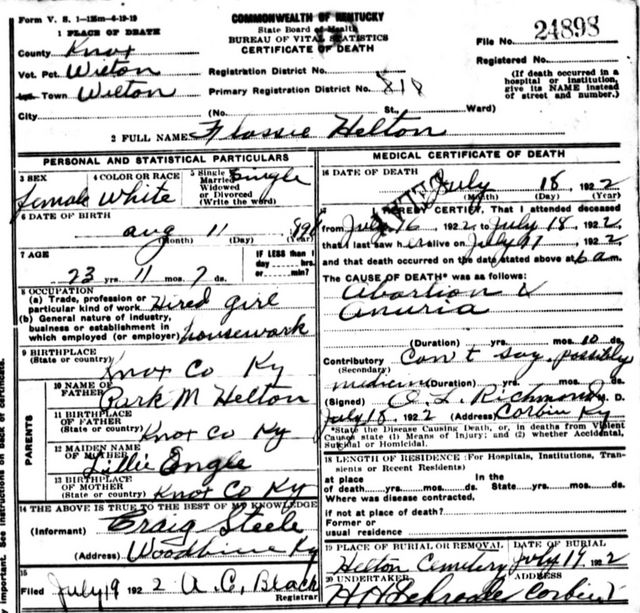 Form V. S. 1—125m—6-19-19
COMMONWEALTH OF KENTUCKY
State Board of Health
BUREAU OF VITAL STATISTICS
CERTIFICATE OF DEATH
File No. 24898
Registered No.
(If death occurred in a hospital or institution, give its NAME instead of street and number.)
1 PLACE OF DEATH
County Knox
Vot. Pct. Wilton
Town Wilton
City
Registration District No.
Primary Registration District No. 818
(No. St., Ward)
2 FULL NAME Flossie Helton
PERSONAL AND STATISTICAL PARTICULARS
3 SEX female
4 COLOR OR RACE White
5 Single Married Widowed or Divorced (Write the word) Single
6 DATE OF BIRTH
Aug 11
(Month) (Day) (Year)
7 AGE
23 yrs. 11 mos. 7 ds.
IF LESS than 1 day----hrs. or------min?
8 OCCUPATION
(a) Trade, profession or particular kind of work Hired girl
(b) General nature of industry, business or establishment in which employed (or employer) housework
9 BIRTHPLACE
(State or country) Knox Co Ky
PARENTS
10 NAME OF FATHER Park M Helton
11 BIRTHPLACE OF FATHER (State or country) Knox Co Ky
12 MAIDEN NAME OF MOTHER Lillie Engle
13 BIRTHPLACE OF MOTHER (State or country) Knox Co Ky
14 THE ABOVE IS TRUE TO THE BEST OF MY KNOWLEDGE
(Informant) Craig Steele
(Address) Woodbine Ky
15
Filed July 19 1922 A. C. Black
Registrar
MEDICAL CERTIFICATE OF DEATH
16 DATE OF DEATH
July 18, 1922
(Month) (Day) (Year)
I HEREBY CERTIFY, That I attended deceased
from July 16 1922 to July 18, 1922,
that I last saw h er alive on July 17 1922
and that death occurred on the date stated above at 6 am.
The CAUSE OF DEATH* was as follows:
Abortion &
Anuria
(Duration) yrs. mos. 10 ds.
Contributory Can't say, possibly
(Secondary)
medicine (Duration) yrs. mos. ds.
(Signed) O. L. Richmond M. D.
July 18, 1922 (Address) Corbin Ky
*State the Disease Causing Death, or, in deaths from Violent Causes state (1) Means of Injury; and (2) whether Accidental, Suicidal or Homicidal.
18 LENGTH OF RESIDENCE (For Hospitals, Institutions, Transients or Recent Residents)
at place of death yrs. mos. ds.
In the State yrs. mos. ds.
Where was disease contracted, if not at place of death?
Former or usual residence
19 PLACE OF BURIAL OR REMOVAL
Helton Cemetery
DATE OF BURIAL
July 19, 1922
20 UNDERTAKER
ADDRESS
Corbin
important. See instructions on back of certificate.